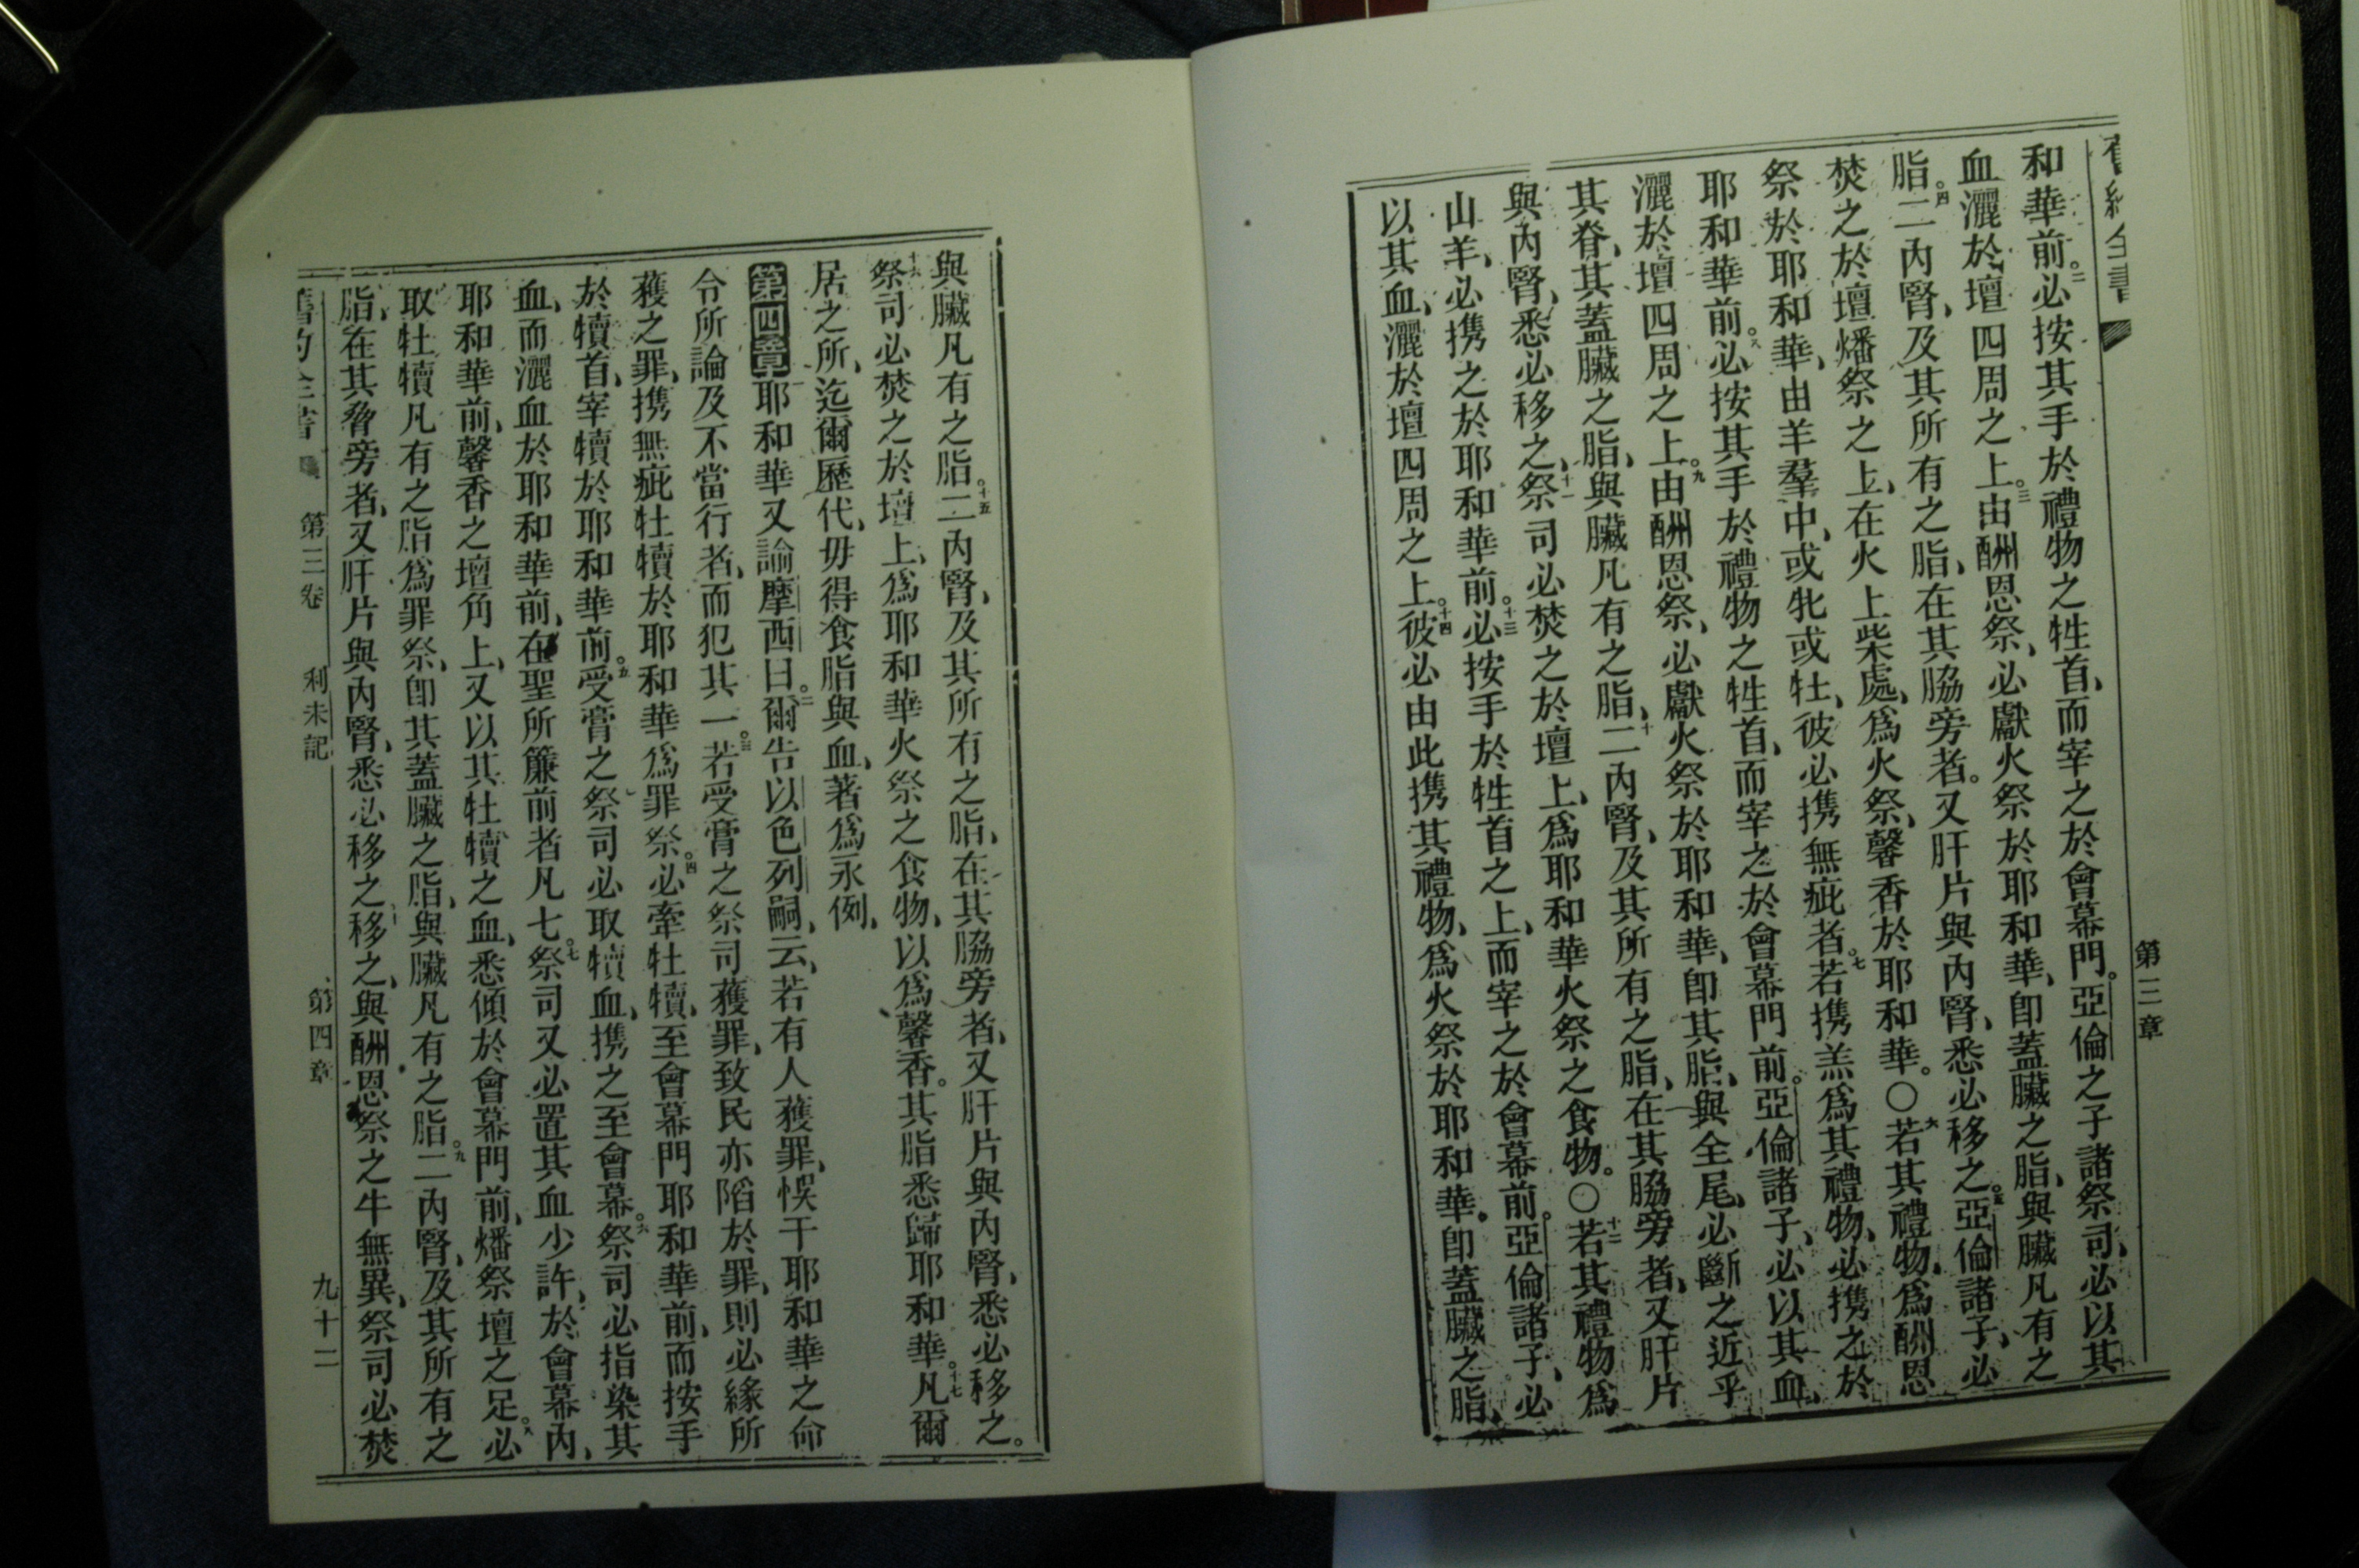 全書
第三章
和華前。二必按其手於禮物之牲首、而宰之於會幕門。亞倫之子諸祭司、必以其
血灑於壇四周之上。三由酬恩祭、必獻火祭於耶和華、卽蓋臟之脂、與臟凡有之
脂。四二內腎、及其所有之脂、在其脇旁者。又肝片與內腎、悉必移之。五亞倫諸子、必
焚之於壇燔祭之上、在火上柴處、爲火祭、馨香於耶和華。○六若其禮物、爲酬恩
祭於耶和華、由羊羣中、或牝或牡、彼必攜無疵者。七若攜羔爲其禮物、必攜之於
耶和華前。八必按其手於禮物之牲首、而宰之於會幕門前。亞倫諸子、必以其血、
灑於壇四周之上。九由酬恩祭、必獻火祭於耶和華、卽其脂、與全尾、必斷之近乎
其脊、其蓋臟之脂、與臟凡有之脂、十二內腎、及其所有之脂、在其脇旁者、又肝片
與內腎、悉必移之、十一祭司必焚之於壇上、爲耶和華火祭之食物。○十二若其禮物爲
山羊、必攜之於耶和華前。十三必按手於牲首之上、而宰之於會幕前。亞倫諸子、必
以其血、灑於壇四周之上。十四彼必由此攜其禮物、爲火祭於耶和華、卽蓋臟之脂、
與臟凡有之脂。十五二內腎、及其所有之脂、在其脇旁者、又肝片與內腎、悉必移之。
十六祭司必焚之於壇上、爲耶和華火祭之食物、以爲馨香。其脂悉歸耶和華。十七凡爾
居之所、迄爾歷代、毋得食脂與血、著爲永例、
第四章耶和華又諭摩西曰。二爾告以色列嗣云、若有人獲罪、悞干耶和華之命
令所論及不當行者、而犯其一。三若受膏之祭司獲罪、致民亦陷於罪、則必緣所
獲之罪、攜無疵牡犢於耶和華爲罪祭。四必牽牡犢、至會幕門耶和華前、而按手
於犢首、宰犢於耶和華前。五受膏之祭司必取犢血、攜之至會幕。六祭司必指染其
血、而灑血於耶和華前、在聖所簾前者凡七。七祭司又必置其血少許、於會幕內、
耶和華前、馨香之壇角上、又以其牡犢之血、悉傾於會幕門前、燔祭壇之足。八必
取牡犢凡有之脂爲罪祭、卽其蓋臟之脂、與臟凡有之脂。九二內腎、及其所有之
脂、在其脅旁者、又肝片與內腎、悉必移之、十移之、與酬恩祭之牛無異、祭司必焚
第三卷 利未記 第四章 九十二